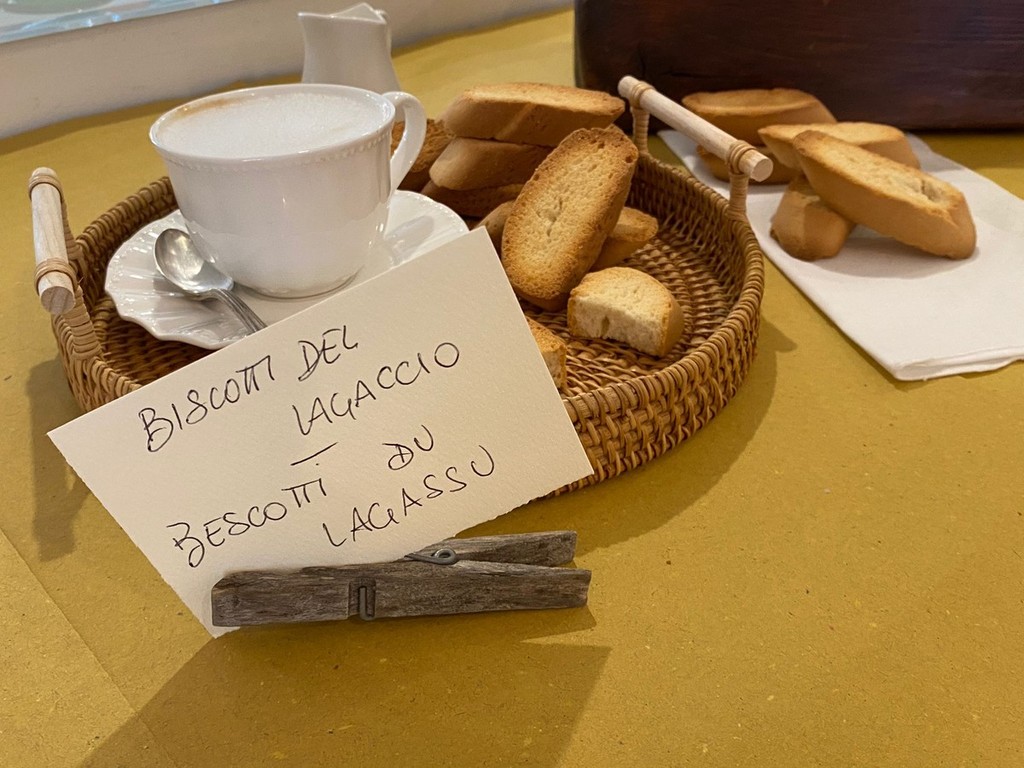 BISCOTTI DEL
LAGACCIO
—
BESCOTTI DU
LAGASSU